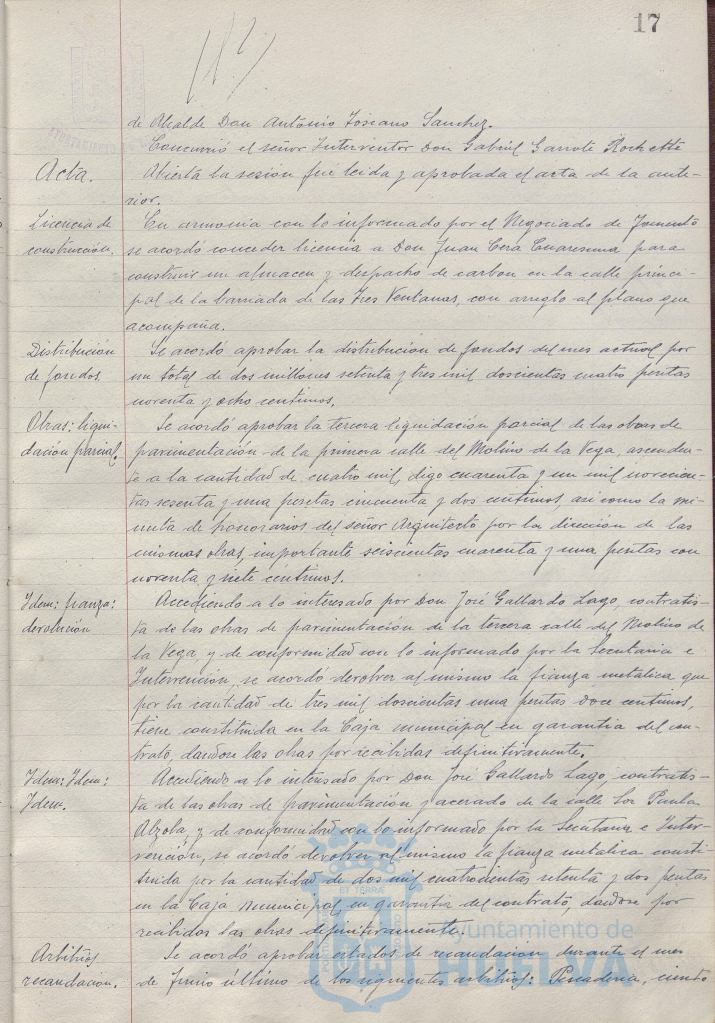 17
de Alcalde Don Antonio Toscano Sanchez.
Concurrió el señor Interventor Don Gabriel Garrote Rochette
Acta.
Abierta la sesion fué leida y aprobada el acta de la ante-
rior.
Licencia de
construcción.
En armonia con lo informado por el Negociado de Fomento
se acordó conceder licencia a Don Juan Cera Cuaresma para
construir un almacen y despacho de carbon en la calle princi-
pal de la barriada de las Tres Ventanas, con arreglo al plano que
acompaña.
Distribución
de fondos.
Se acordó aprobar la distribucion de fondos del mes actual por
un total de dos millones setenta y tres mil doscientas cuatro pesetas
noventa y ocho centimos.
Obras: liqui-
dación parcial.
Se acordó aprobar la tercera liquidación parcial de las obras de
pavimentación de la primera calle del Molino de la Vega, ascenden-
te a la cantidad de cuatro mil, digo cuarenta y un mil novecien-
tas sesenta y una pesetas cincuenta y dos centimos asi como la mi-
nuta de honorarios del señor Arquitecto por la dirección de las
mismas obras, importante seiscientas cuarenta y una pesetas con
noventa y siete centimos.
Idem: fianza:
devolución
Accediendo a lo interesado por Don José Gallardo Lago, contratis-
ta de las obras de pavimentación de la tercera calle del Molino de
la Vega y de conformidad con lo informado por la Secretaria e
Intervención, se acordó devolver al mismo la fianza metalica que
por la cantidad de tres mil doscientas una pesetas doce centimos,
tiene constituida en la Caja municipal en garantia del con-
trato, dandose las obras por recibidas definitivamente.
Idem: Idem:
Idem.
Accediendo a lo interesado por Don José Gallardo Lago, contratis-
ta de las obras de pavimentación y acerado de la calle Sor Paula
Alzola, y de conformidad con lo informado por la Secretaria e Inter-
vención, se acordó devolver al mismo la fianza metalica consti-
tuida por la cantidad de dos mil cuatrocientas setenta y dos pesetas
en la Caja municipal en garantia del contrato, dandose por
recibidas las obras definitivamente.
Arbitrios
recaudacion.
Se acordó aprobar estados de recaudacion durante el mes
de Junio último de los siguientes arbitrios: Pescaderia, ciento
ET TERRAE
Ayuntamiento de
HUELVA